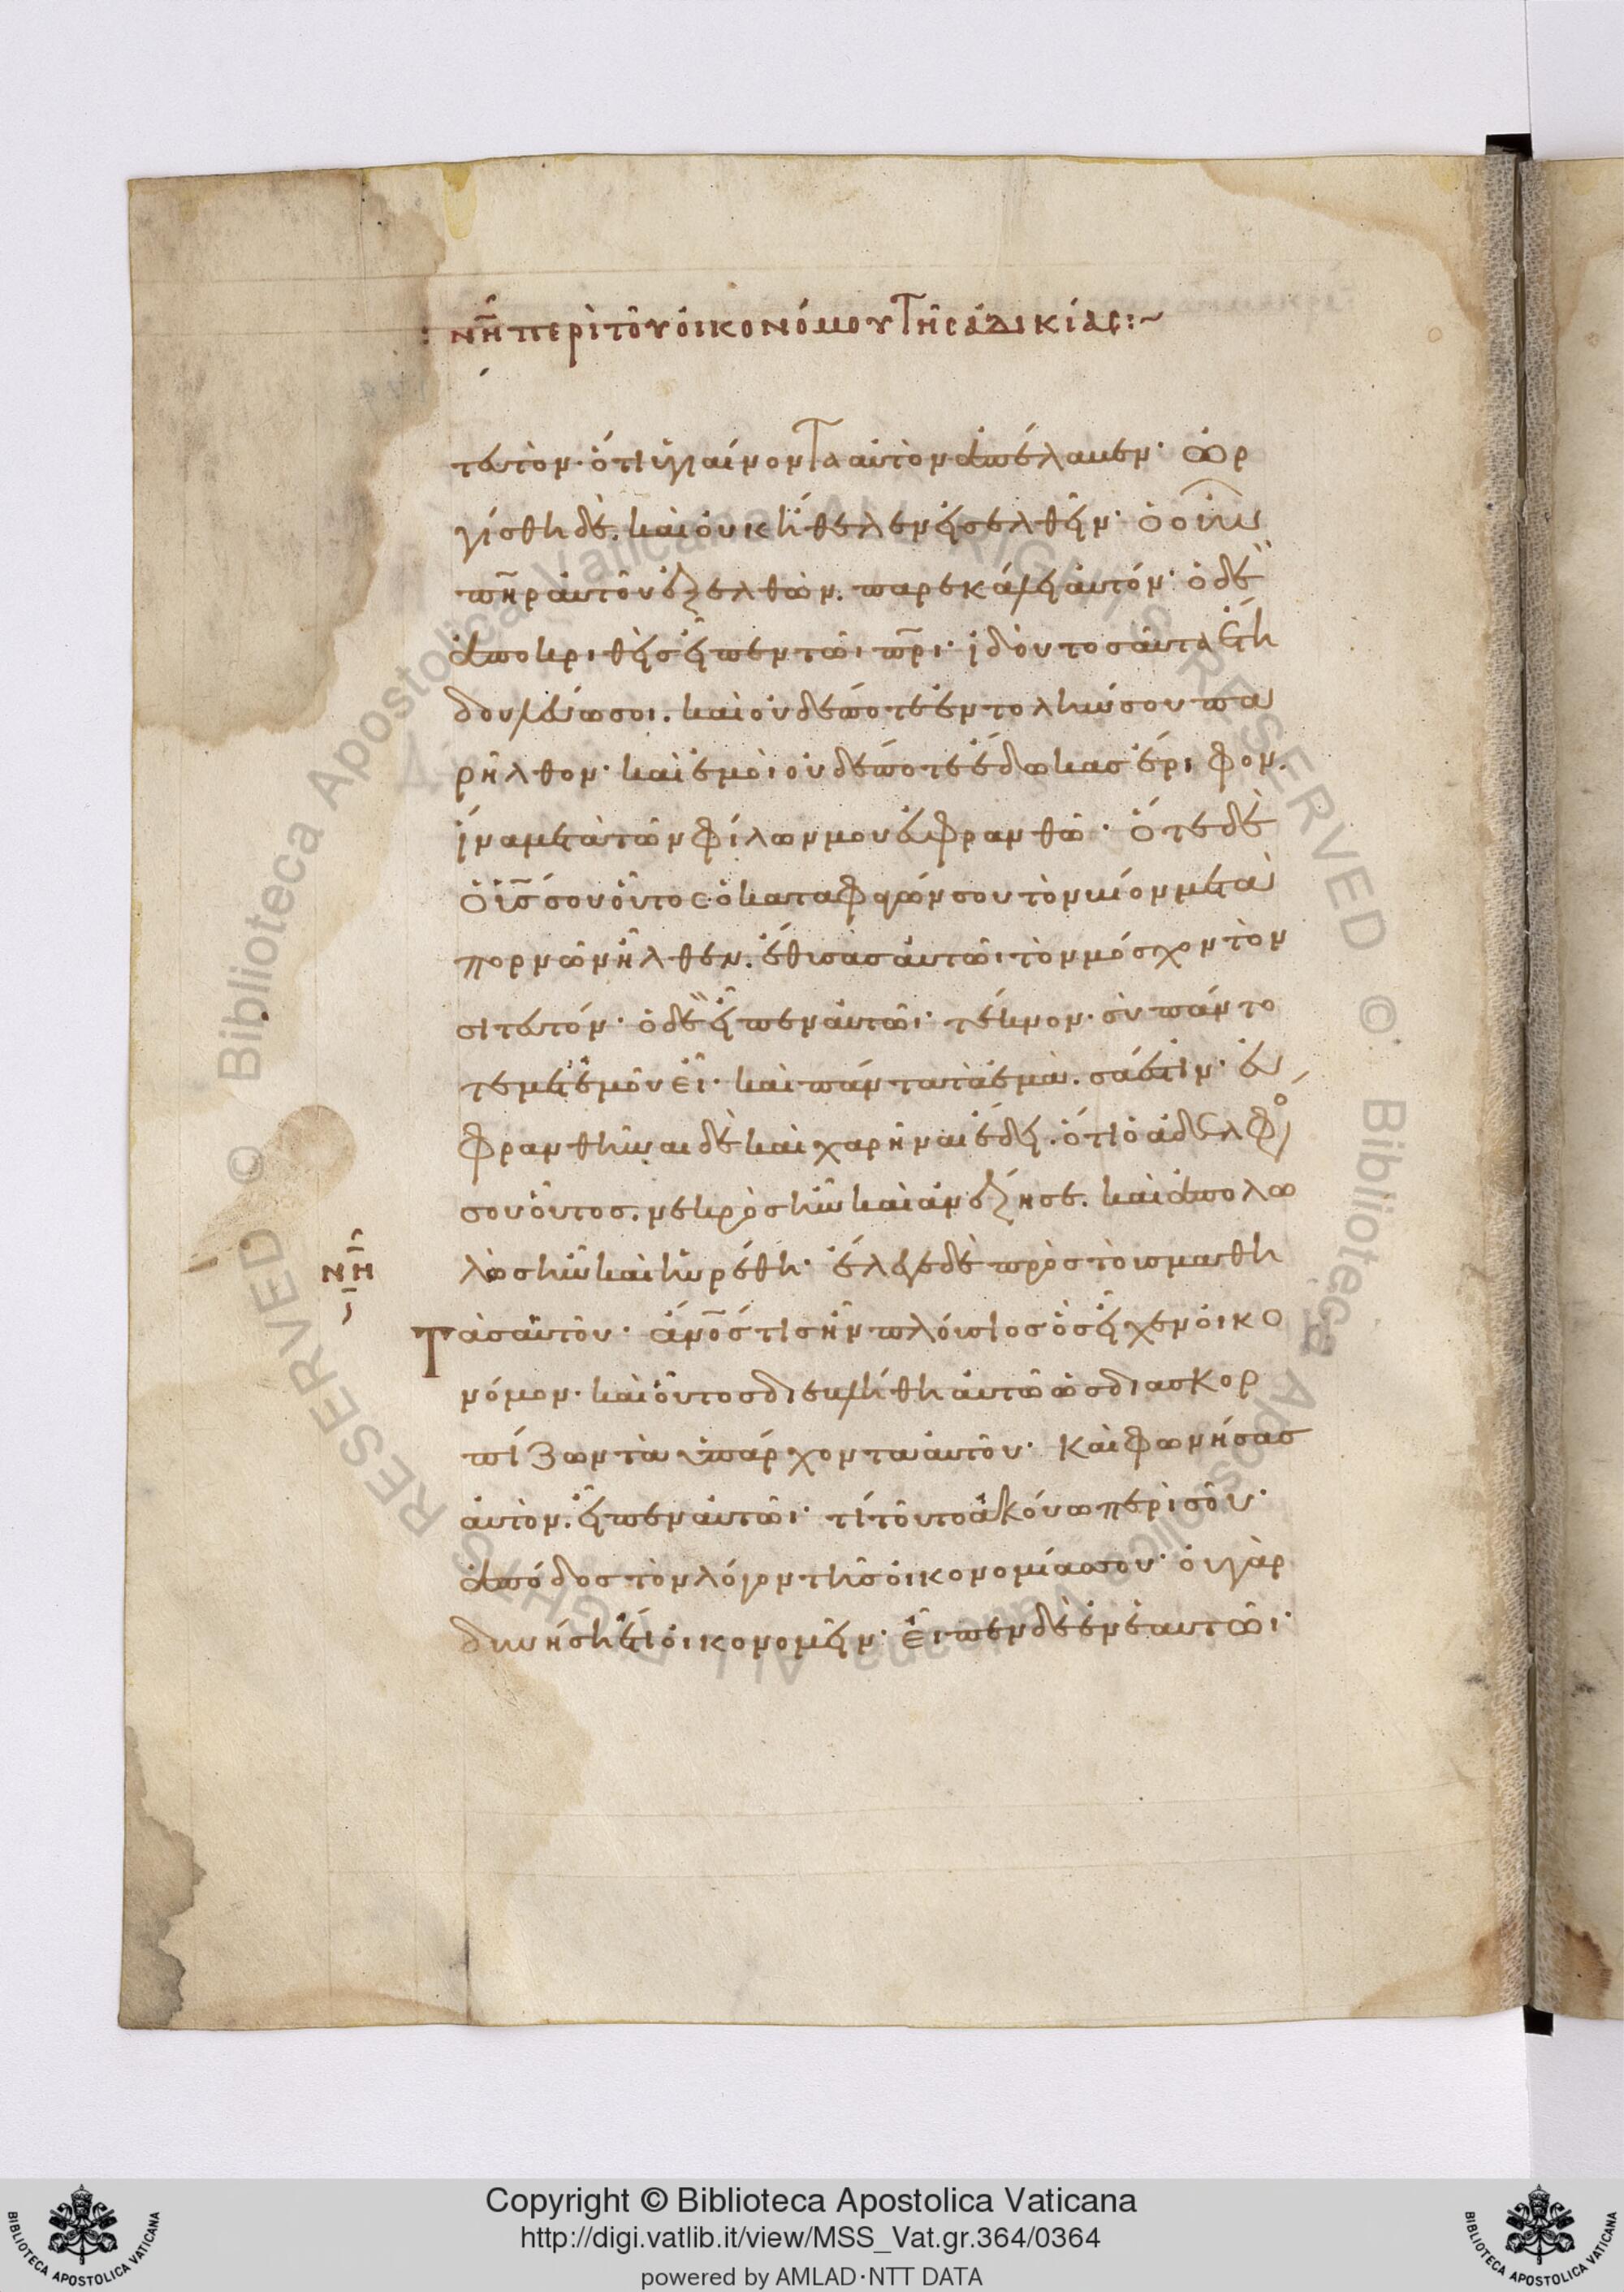 νη περὶ τοῦ οἰκονόμου τῆς ἀδικίας:~
τευτὸν· ὅτι ὑγιαίνοντα αὐτὸν ἀπέλαβεν· ὠρ
γίσθη δὲ. καὶ οὐκ ἤθελεν εἰσελθεῖν· ὁ οὖν
πηρ αὐτοῦ ἐξελθὼν. παρεκάλει αὐτόν· ὁ δὲ
ἀποκριθεὶς εἶπεν τῶι πρι· ἰδοὺ τοσαῦτα ἔτη
δουλεύω σοι. καὶ οὐδέποτε ἐντολήν σου πα
ρῆλθον· καὶ ἐμοὶ οὐδέποτε ἔδωκας ἔριφον.
ἵνα μετὰ τῶν φίλων μου εὐφρανθῶ· ὅτε δὲ
ὁ υς σου οὗτος ὁ καταφαγών σου τὸν βίον μετὰ
πορνῶν ἦλθεν. ἔθυσας αὐτῶι τὸν μόσχον τὸν
σιτευτόν· ὁ δὲ εἶπεν αὐτῶι· τέκνον· σὺ πάντο
τε μετ' ἐμοῦ εἶ· καὶ πάντα τὰ ἐμὰ. σά ἐστιν· εὐ
φρανθῆναι δὲ καὶ χαρῆναι ἔδει. ὅτι ὁ ἀδελφό
σου οὗτος. νεκρὸς ἦν καὶ ἀνέζησε. καὶ ἀπολω
λὼς ἦν καὶ ηὑρέθη· ἔλεγε δὲ πρὸς τοὺς μαθη
νη
τὰς αὐτοῦ· ανος τις ἦν πλούσιος ὃς εἶχεν οἰκο
νόμον· καὶ οὗτος διεβλήθη αὐτῶ ὡς διασκορ
πίζων τὰ ὑπάρχοντα αὐτοῦ· Καὶ φωνήσας
αὐτὸν. εἶπεν αὐτῶι· τί τοῦτο ἀκούω περὶ σοῦ·
ἀπόδος τὸν λόγον τῆς οἰκονομίας σου· οὐ γὰρ
δυνήση ἔτι οἰκονομεῖν· εἶπεν δὲ ἐν ἑαυτῶι·
Copyright © Biblioteca Apostolica Vaticana
http://digi.vatlib.it/view/MSS_Vat.gr.364/0364
powered by AMLAD·NTT DATA
BIBLIOTECA APOSTOLICA VATICANA
BIBLIOTECA APOSTOLICA VATICANA
© Biblioteca Apostolica Vaticana ALL RIGHTS RESERVED
© Biblioteca Apostolica Vaticana ALL RIGHTS RESERVED